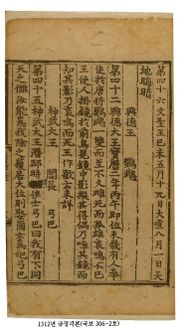 第四十六文聖王己未五月十九日大雪八月一日天
地晦暗
興德王 鸚鵡
第四十二興德王寶曆二年丙午即位未幾有人奉
使於唐將鸚鵡一雙而至不久雌死而孤雄哀鳴不已
王使人掛鏡於前鳥見鏡中影擬其得偶乃其鏡而
知其影乃哀鳴而死王作歌云未詳
神武大王 閻長 弓巴
第四十五神武大王潛邸時謂俠士弓巴曰我有不同
天之讎汝能爲我除之獲居大位則娶爾女爲妃弓巴
1512년 규장각본(국보 306-2호)